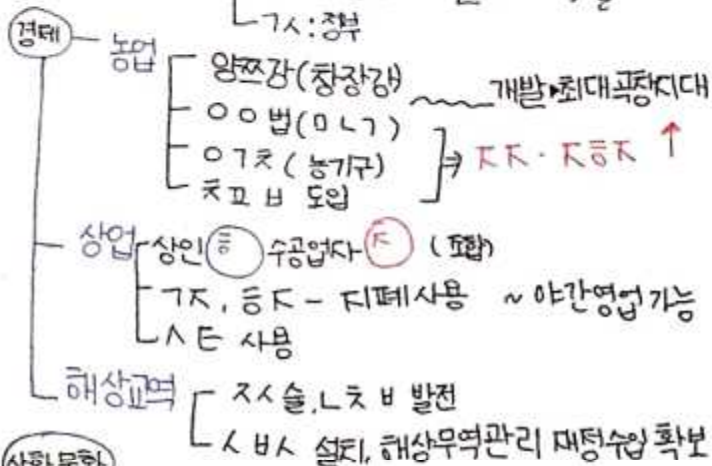 ㄱㅅ:정부
경제 농업 양쯔강(창장강) 개발▶최대곡창지대
ㅇㅇ법(ㅁㄴㄱ)
ㅇㄱㅊ(농기구) ⇒ ㅈㅈ·ㅈㅎㅈ ↑
ㅊㄲㅂ 도입
상업 상인 ㅎ 수공업자 ㅈ (조합)
ㄱㅈ, ㅎㅈ - 지폐사용 ~야간영업 가능
ㅅㅌ 사용
해상교역 ㅈㅅ술,ㄴㅊㅂ 발전
ㅅㅂㅅ 설치, 해상무역관리 재정수입 확보